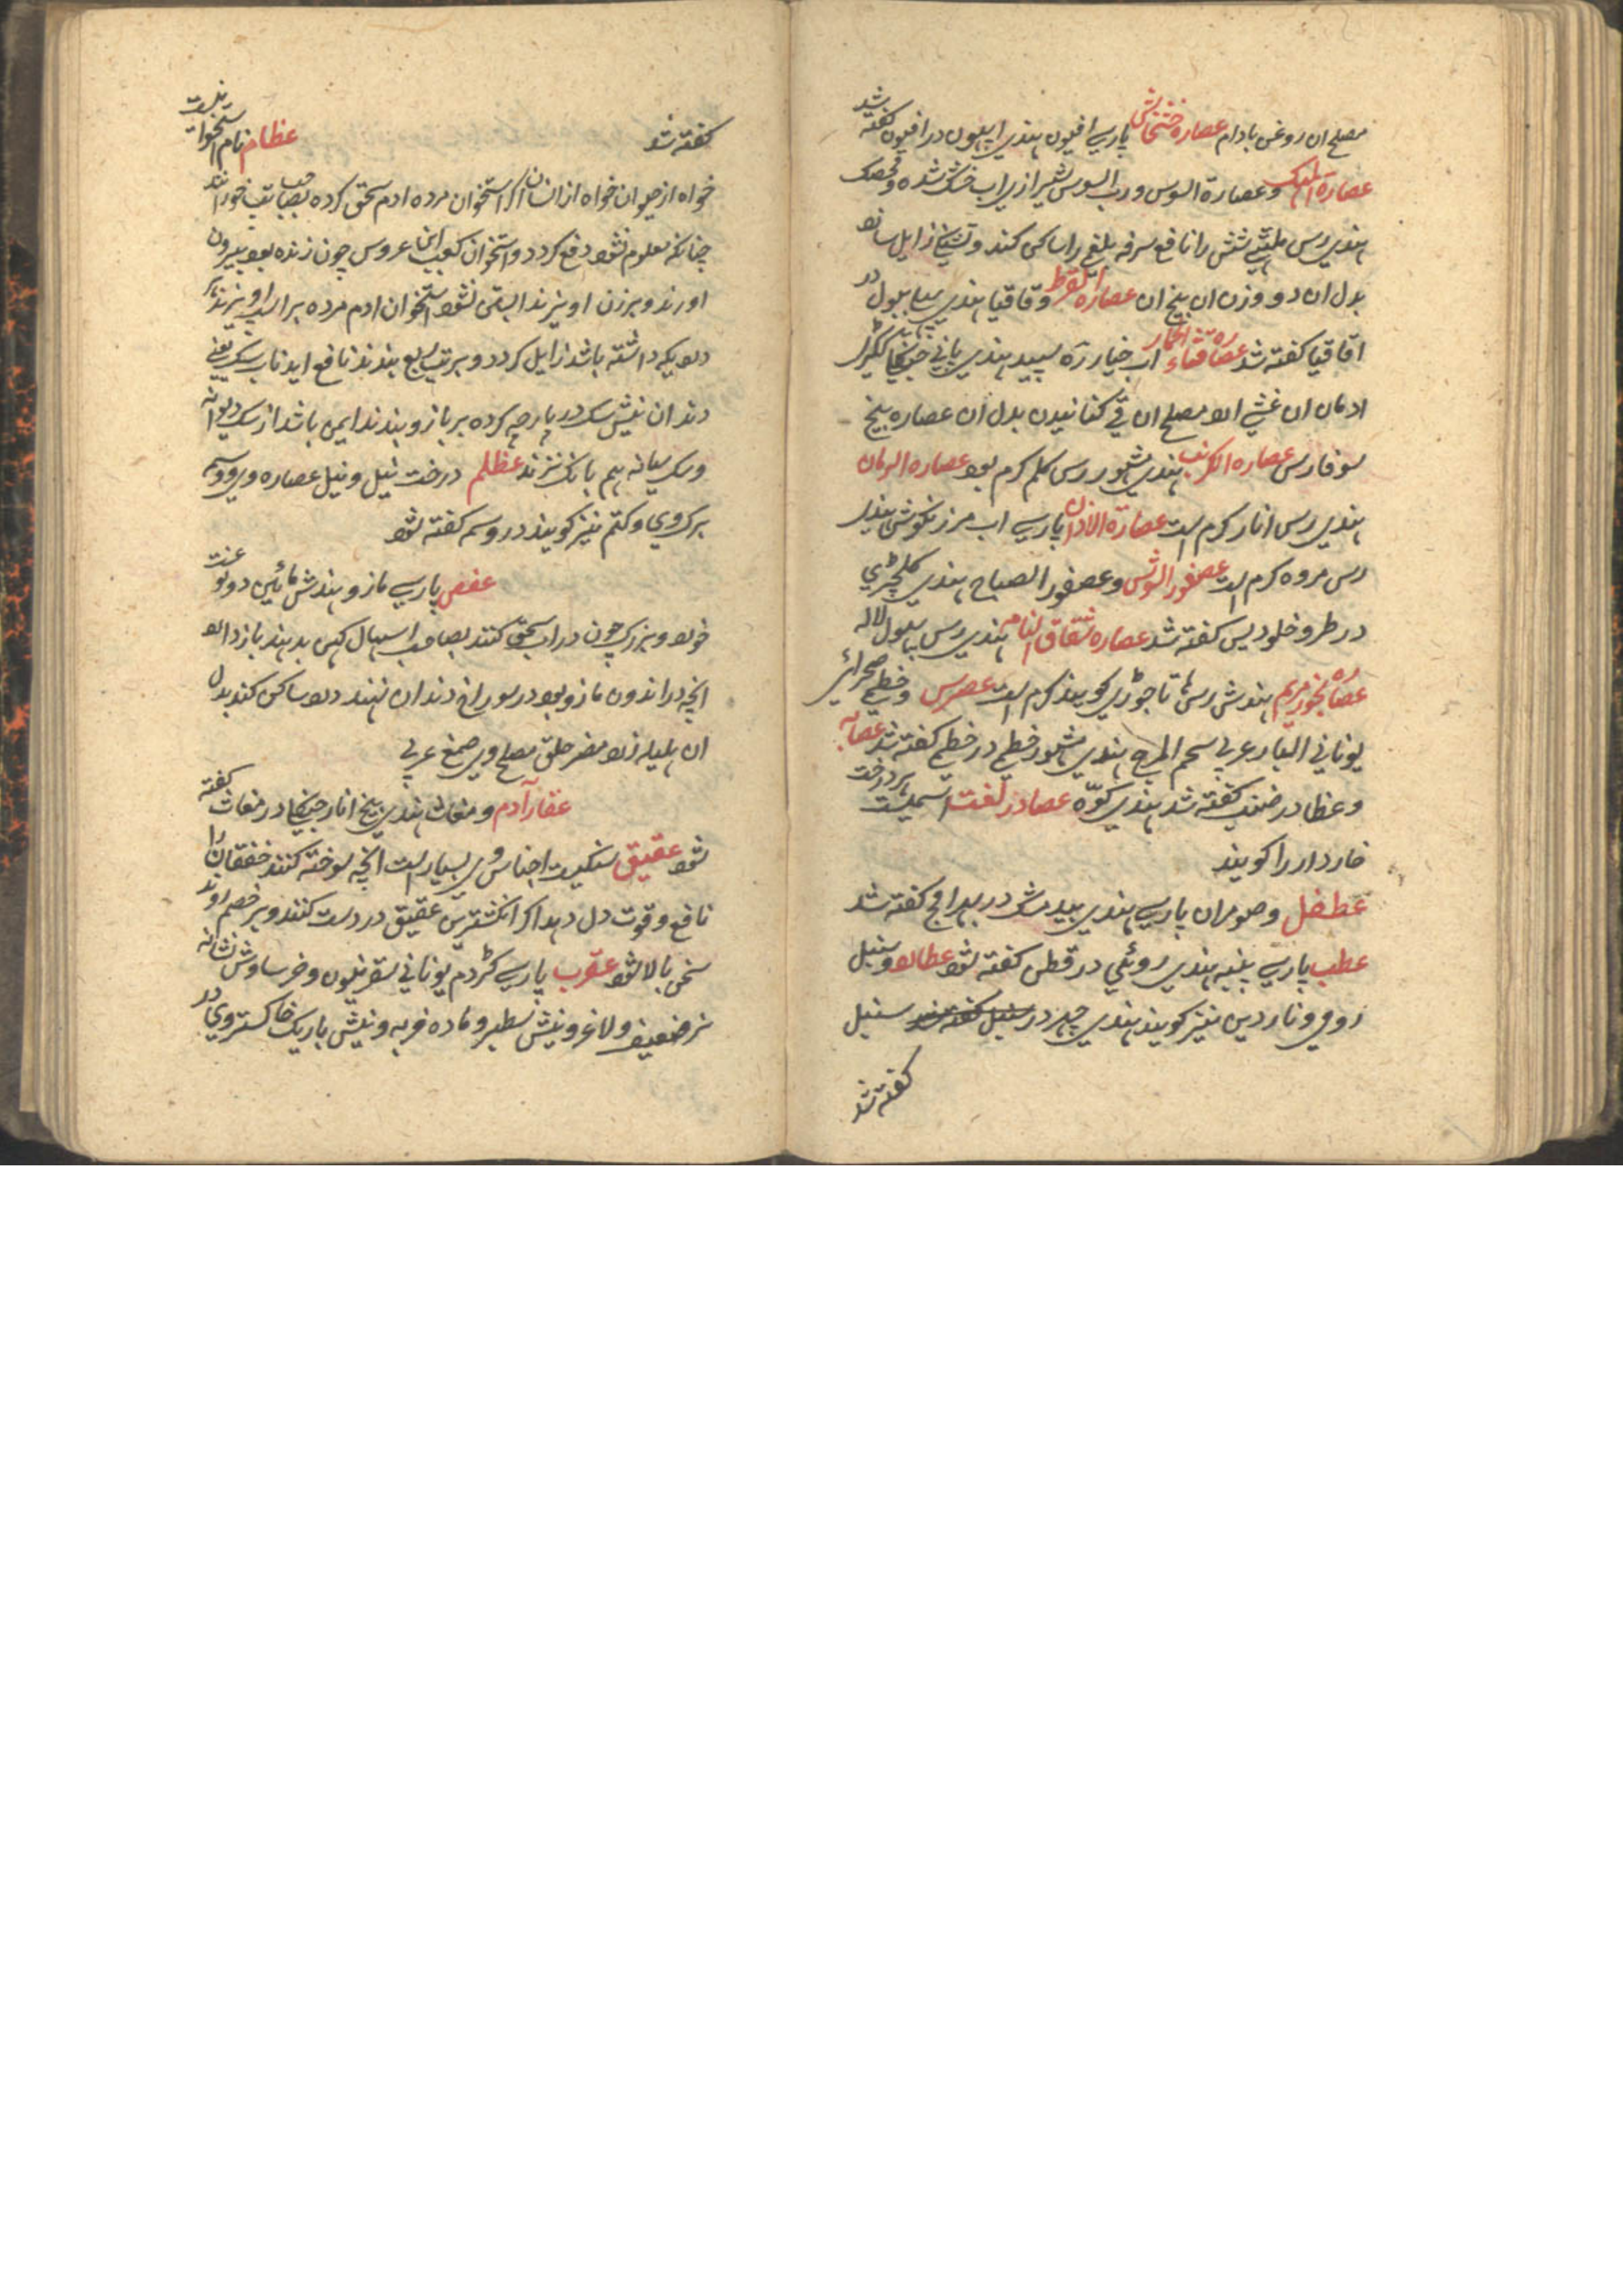 مصلح ان روغن بادام عصاره خشخاش پارسے افیون ہندی اپیون در افیون کفته شد
عصارة المہک و عصارة السوس و رب السوس شیرازی اب خشک شده و محک
ہندی رس ملہٹے شش را نافع سرفه بلغم را ساکن کند و تشنکے زایل سازد
بدل ان دو وزن ان بیخ ان عصاره القرظ و قاقیا ہندی ببول در
اقاقیا کفته شد عصاره قثاء الحمار اب خیارزه سپید ہندی پانی جنکلی ککڑی
ادمان ان غشے ارد مصلح ان قے کنانیدن بدل ان عصاره بیخ
سوفارس عصاره الکرنب ہندی مشهور رس کلم کرم بود عصاره الرمان
ہندی رس انار کرم است عصارة الاذان پارسے اب مرزنکوش ہندی
رس مروه کرم است عصفور الشوس و عصفور الصباح ہندی کلچڑی
در طروخلودیس کفته شد عصاره شقاق النعام ہندی رس پہول لاله
عصاره بخور مریم ہندش رس ہاتاجوڑی کویند کرم است عصرس و خطمے صحرائی
یونانی البار عربی شحم المرج ہندی مشهور خطمے در خطمے کفته شد عصایه
و عظا در ضب کفته شد ہندی کوّه عصا در لغت اسمیست ہر درخت
خاردار را کویند
عطفل و صومران پارسے ہندی بیدمشک در بهرامج کفته شد
عطب پارسے پنبه ہندی روئی در قطن کفته شود عطارد و سنبل
رومی و ناردین نیز کویند ہندی چهر در سنبل
کفته شد
کفته شد عظام نام استخوان است
خواه از حیوان خواه از انسان اکر استخوان مرده ادم سحق کرده بصاحب تب خورانند
چنانکه معلوم نشود دفع کردد و استخوان کعب ابن عروس چون زنده بود بیرون
اورند و بر زن اویزند ابستن نشود استخوان ادم مرده بر اسپ اویزند اکر
درد یکه داشته باشد زایل کردد و بر تب ربع بندند نافع اید ناب سک یعنے
دندان نیش سک در پارچه کرده بر بازو بندند ایمن باشد از سک دیوانه
و سک بیانه ہم بانک نزند عظلم درخت نیل و نیل عصاره وی و وسمه
برک وی و کتم نیز کویند در وسمه کفته شود
عفص پارسے مازو ہندش مائین دو نوعست
خورد و بزرک چون در اب سحق کنند بصاحب اسهال کهن بدہند باز دارد
انچه در اندرون مازو بود در سوراخ دندان نهند درد ساکن کند بدل
ان ہلیله زرد مضر حلق مصلح وی صمغ عربی
عقار آدم و مغاث ہندی بیخ انار جنکلی در مغاث کفته
شود عقیق سنکیست اجناس وی بسیار است انچه سوخته کنند خفقان را
نافع و قوت دل دہد اکر انکشترین عقیق در دست کنند و بر خصم روند
سخن بالا شود عقرب پارسے کژدم یونانی سقرنلیون و خرساوش نشانه
نر ضعیف و لاغر و نیش سطبر و ماده فربه و نیش باریک خاکستر وی در